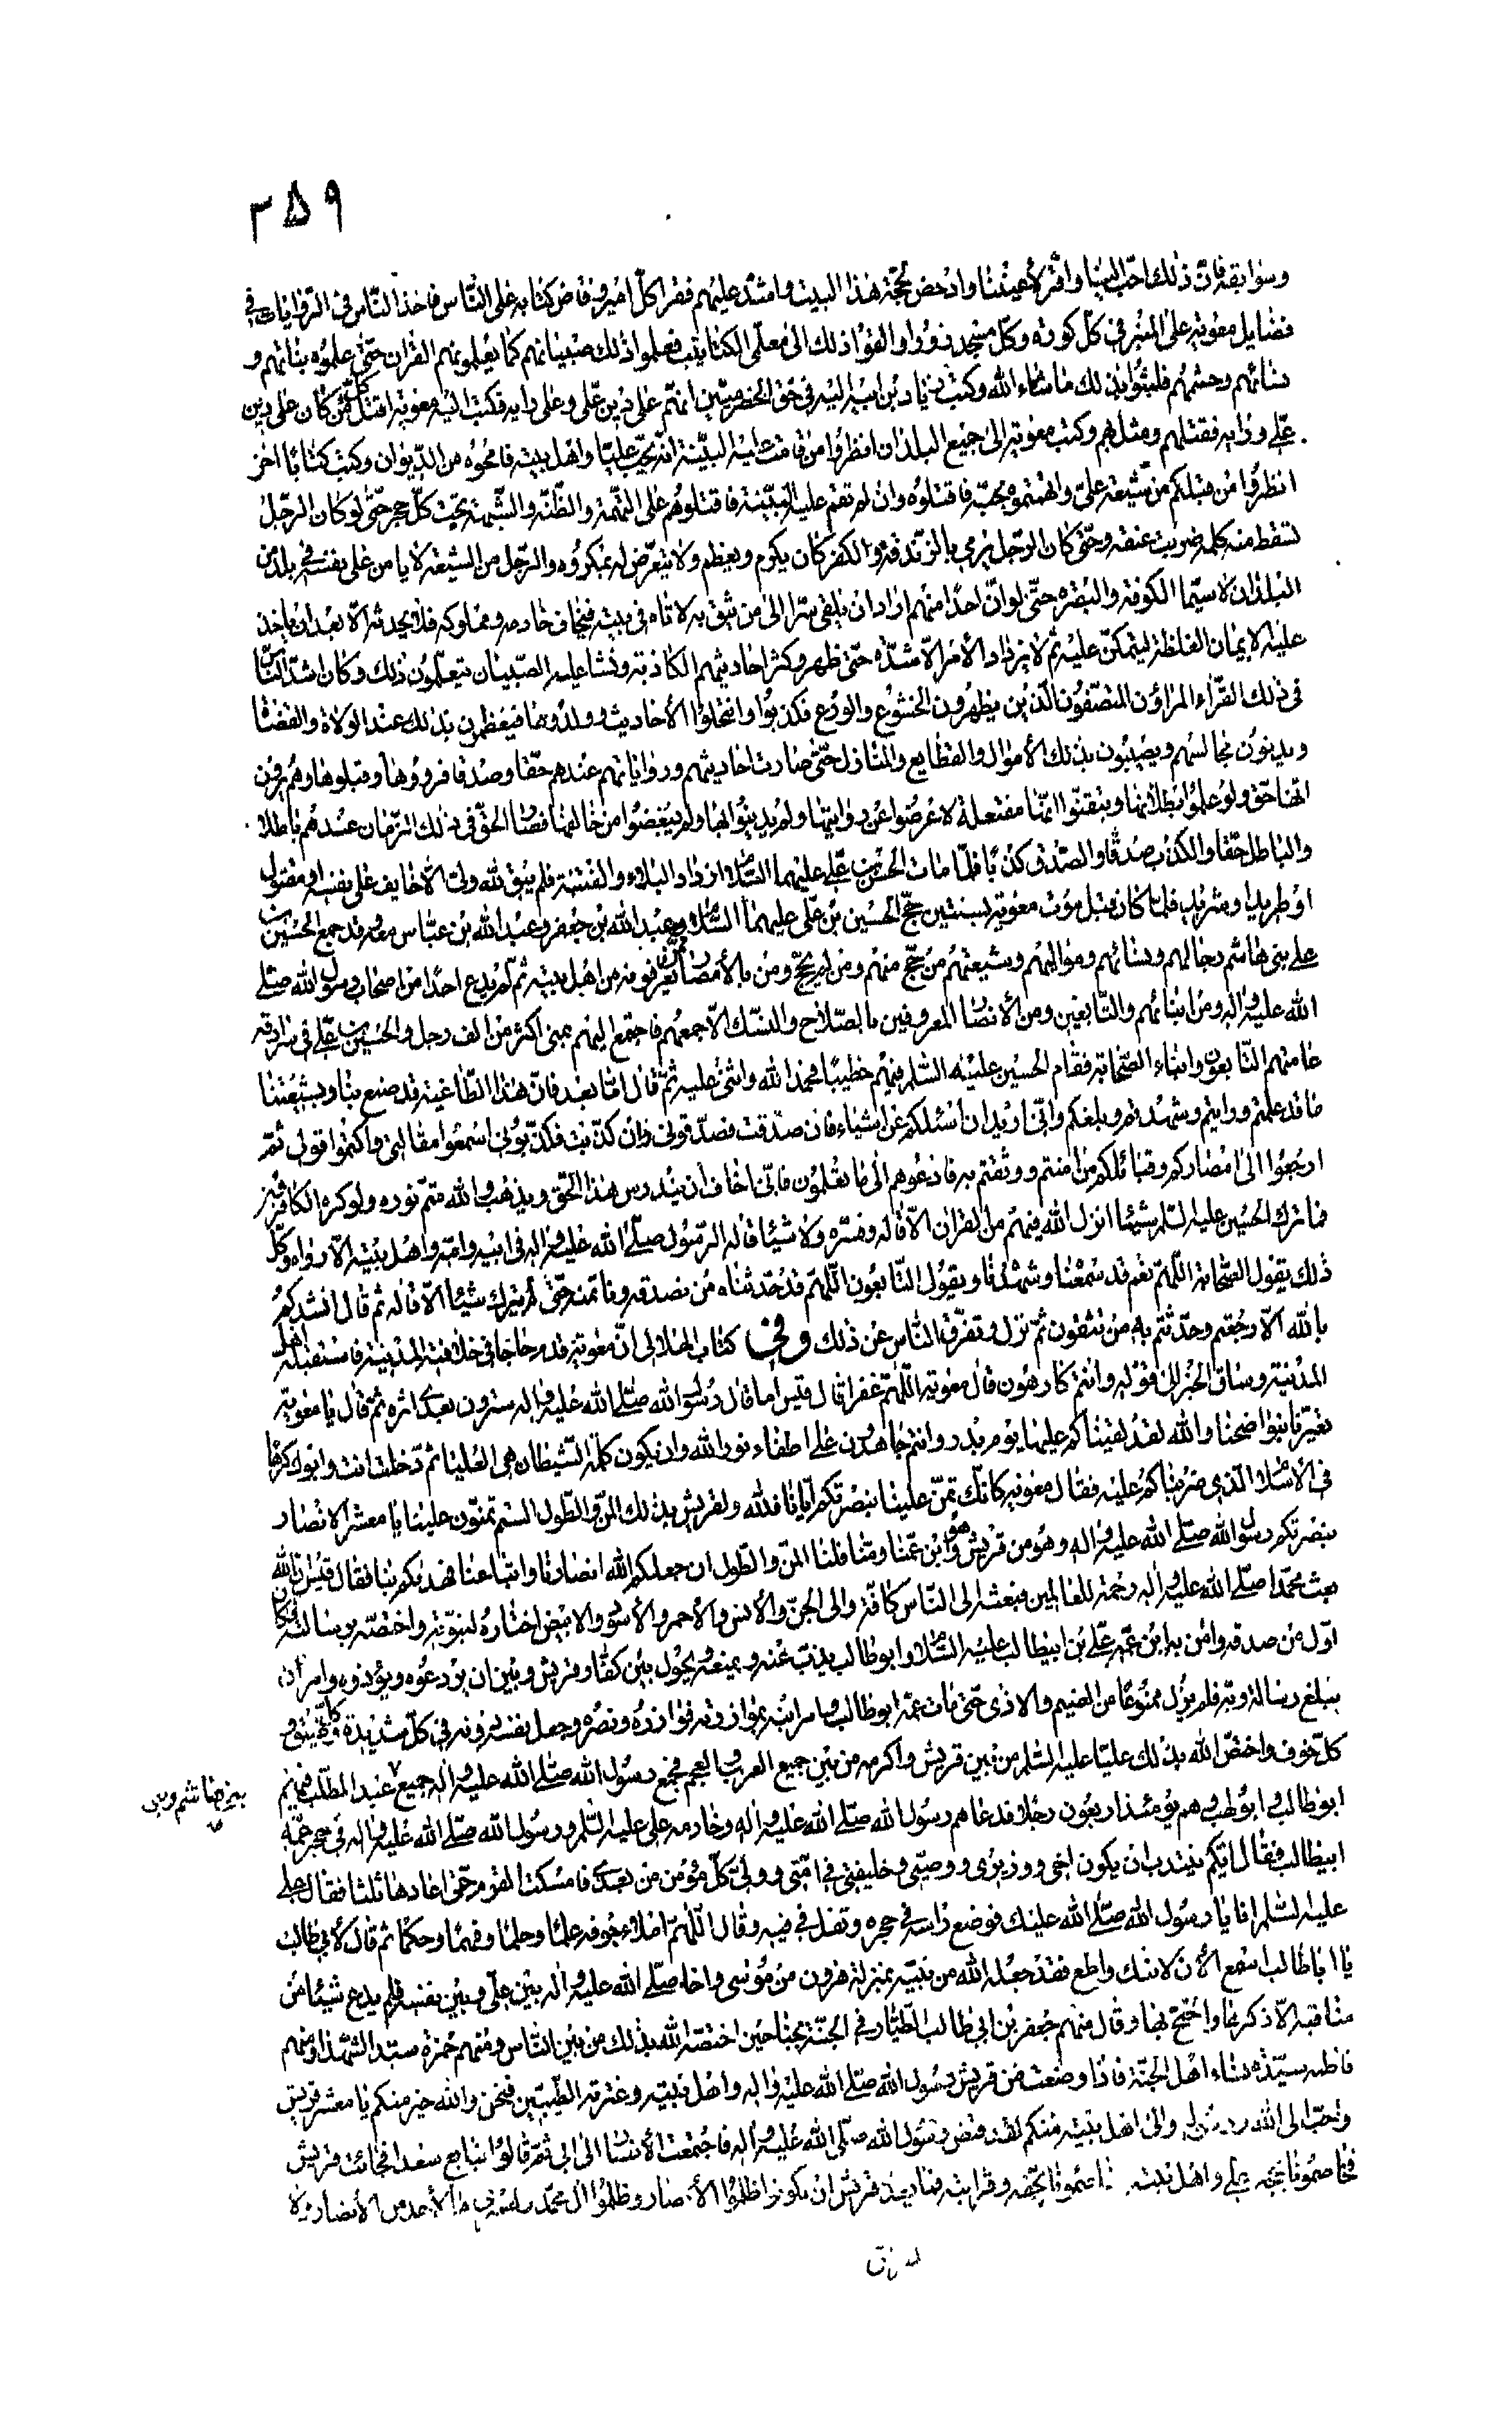 ٢٥٩
وسوابقه فان ذلك احب الينا واقر لأعيننا وادحض لحجة هذا البيت واشد عليهم فقرا كل امير وقاض كتابه على الناس فاخذ الناس في الروايات في
فضايل معوية على المنبر في كل كورة وكل مسجد زورا والقوا ذلك الى معلمي الكتاتيب فعلموا ذلك صبيانهم كما يعلمونهم القران حتى علموه بناتهم و
نسائهم وحشمهم فلبثوا بذلك ما شاء الله وكتب زياد بن ابيه اليه في حق الحضرميين انهم على دين علي وعلى رايه فكتب اليه معوية اقتل كل من كان على دين
علي ورايه فقتلهم ومثل بهم وكتب معوية الى جميع البلدان انظروا من قامت عليه البينة انه يحب عليا واهل بيته فامحوه من الديوان وكتب كتابا اخر
انظروا من قبلكم من شيعة علي واتهمتموه بحبه فاقتلوه وان لم تقم عليه البينة فاقتلوهم على التهمة والظنة والشبهة تحت كل حجر حتى لو كان الرجل
تسقط منه كلمة ضربت عنقه وحتى كان الرجل يرمي بالزندقة والكفر كان يكرم ويعظم ولا يتعرض له بمكروه والرجل من الشيعة لا يامن على نفسه في بلد من
البلدان لا سيما الكوفة والبصرة حتى لو ان احدا منهم اراد ان يلقي سرا الى من يثق به لاتاه في بيته فيخاف خادمه ومملوكه فلا يحدثه الا بعد ان ياخذ
عليه الايمان الغلظة ليتمكن عليه ثم لا يزداد الأمر الا شدة حتى ظهر وكثر احاديثهم الكاذبة ونشا عليه الصبيان يتعلمون ذلك وكان اشد الناس
في ذلك القراء المراؤن المتصنفون الذين يظهرون الخشوع والورع فكذبوا وانتحلوا الأحاديث وولدوها فيحظون بذلك عند الولاة والقضاة
ويدنون مجالسهم ويصيبون بذلك الأموال والقطايع والمنازل حتى صارت احاديثهم ورواياتهم عندهم حقا وصدقا فرووها وقبلوها وهم يرون
انها حق ولو علموا بطلانها وتيقنوا انها مفتعلة لاعرضوا عن روايتها ولم يدينوا بها ولم يبغضوا من خالفها فصار الحق في ذلك الزمان عندهم باطلا
والباطل حقا والكذب صدقا والصدق كذبا فلما مات الحسن بن علي عليهما السلام ازداد البلاء والفتنة فلم يبق لله ولي الا خايف على نفسه او مقتول
او طريد او شريد فلما كان قبل موت معوية بسنتين حج الحسين بن علي عليهما السلام وعبد الله بن جعفر وعبد الله بن عباس معه وقد جمع الحسين بن
علي بني هاشم رجالهم ونسائهم ومواليهم وشيعتهم من حج منهم ومن لم يحج ومن بالأمصار ممن يعرفونه من اهل بيته ثم لم يدع احدا من اصحاب رسول الله صلى
الله عليه واله ومن ابنائهم والتابعين ومن الأنصار المعروفين بالصلاح والنسك الا جمعهم فاجتمع اليهم بمنى اكثر من الف رجل والحسين بن علي في سرادقه
عامتهم التابعون وابناء الصحابة فقام الحسين عليه السلم فيهم خطيبا فحمد الله واثنى عليه ثم قال اما بعد فان هذا الطاغية قد صنع بنا وبشيعتنا
ما قد علمتم ورايتم وشهدتم وبلغكم واني اريد ان اسئلكم عن اشياء فان صدقت فصدقوني وان كذبت فكذبوني اسمعوا مقالتي واكتموا قولي ثم
ارجعوا الى امصاركم وقبائلكم من امنتم ووثقتم به فادعوهم الى ما تعلمون فاني اخاف ان يندرس هذا الحق ويذهب والله متم نوره ولو كره الكافرون
فما ترك الحسين عليه السلم شيئا انزل الله فيهم من القران الا قاله وفسره ولا شيئا قاله الرسول صلى الله عليه واله في ابيه وامه واهل بيته الا رواه وكل
ذلك يقول الصحابة اللهم نعم قد سمعنا وشهدنا ويقول التابعون اللهم قد حدثناه من نصدقه وناتمنه حتى لم يترك شيئا الا قاله ثم قال انشدكم
بالله الا رجعتم وحدثتم به من تثقون ثم نزل وتفرق الناس عن ذلك وفي كتاب الهلالي ان معوية قدم حاجا في خلافته المدينة فاستقبله اهل
المدينة وساق الخبر الى قوله وانتم كارهون قال معوية اللهم غفرا قال قيس اما قال رسول الله صلى الله عليه واله سترون بعدي اثرة ثم قال يا معوية
تعيرنا بنواضحنا والله لقد لقيناكم عليها يوم بدر وانتم جاهدون على اطفاء نور الله وان يكون كلمة الشيطان هي العليا ثم دخلت انت وابوك كرها
في الأسلام الذي ضربناكم عليه فقال معوية كانك تمن علينا بنصرتكم ايانا فلله ولقريش بذلك المن والطول الستم تمنون علينا يا معشر الانصار
بنصرتكم رسول الله صلى الله عليه واله وهو من قريش وهو ابن عمنا ومنا فلنا المن والطول ان جعلكم الله انصارنا واتباعنا فهديكم بنا فقال قيس ان الله
بعث محمدا صلى الله عليه واله رحمة للعالمين فبعثه الى الناس كافة والى الجن والأنس والأحمر والأسود والابيض اختاره لنبوته واختصه برسالته فكان
اول من صدقه وامن به ابن عمه علي بن ابيطالب عليه السلام وابو طالب يذب عنه ويمنعه يحول بين كفار قريش وبين ان يردعوه ويؤذوه وامره ان
يبلغ رسالة ربه فلم يزل ممنوعا من الضيم والاذى حتى مات عمه ابو طالب وامر ابنه بموازرته فوازره ونصره وجعل نفسه دونه في كل شديدة وكل ضيق و
كل خوف واختص الله بذلك عليا عليه السلم من بين قريش واكرمه من بين جميع العرب والعجم فجمع رسول الله صلى الله عليه واله جميع عبد المطلب فيهم
بني هاشم وبني
ابو طالب وابو لهب وهم يومئذ اربعون رجلا فدعاهم رسول الله صلى الله عليه واله وخادمه علي عليه السلم ورسول الله صلى الله عليه واله في حجر عمه
ابيطالب فقال ايكم ينتدب ان يكون اخي ووزيري ووصيي وخليفتي في امتي وولي كل مؤمن من بعدي فامسكت القوم حتى اعادها ثلثا فقال علي
عليه السلم انا يا رسول الله صلى الله عليك فوضع راسه في حجره وتفل في فيه وقال اللهم املاء جوفه علما وحلما وفهما وحكما ثم قال لأبي طالب
يا ابا طالب اسمع الأن لابنك واطع فقد جعله الله من نبيه بمنزلة هرون من موسى واخا صلى الله عليه واله بين علي وبين نفسه فلم يدع شيئا من
مناقبه الا ذكرها واحتج بها وقال منهم جعفر بن ابي طالب الطيار في الجنة بجناحين اختصه الله بذلك من بين الناس ومنهم حمزة سيد الشهداء ومنهم
فاطمه سيدة نساء اهل الجنة فاذا وضعت من قريش رسول الله صلى الله عليه واله واهل بيته وعترته الطيبين فنحن والله خير منكم يا معشر قريش
واحب الى الله ورسوله والى اهل بيته منكم لقد قبض رسول الله صلى الله عليه واله فاجتمعت الأنصار الى ابي ثم قالوا نبايع سعدا فجائت قريش
فخاصمونا بحجة علي واهل بيته خاصمونا بحقه وقرابته فما يعد قريش ان يكونوا ظلموا الأنصار وظلموا ال محمد الأحد من الأنصار ولا